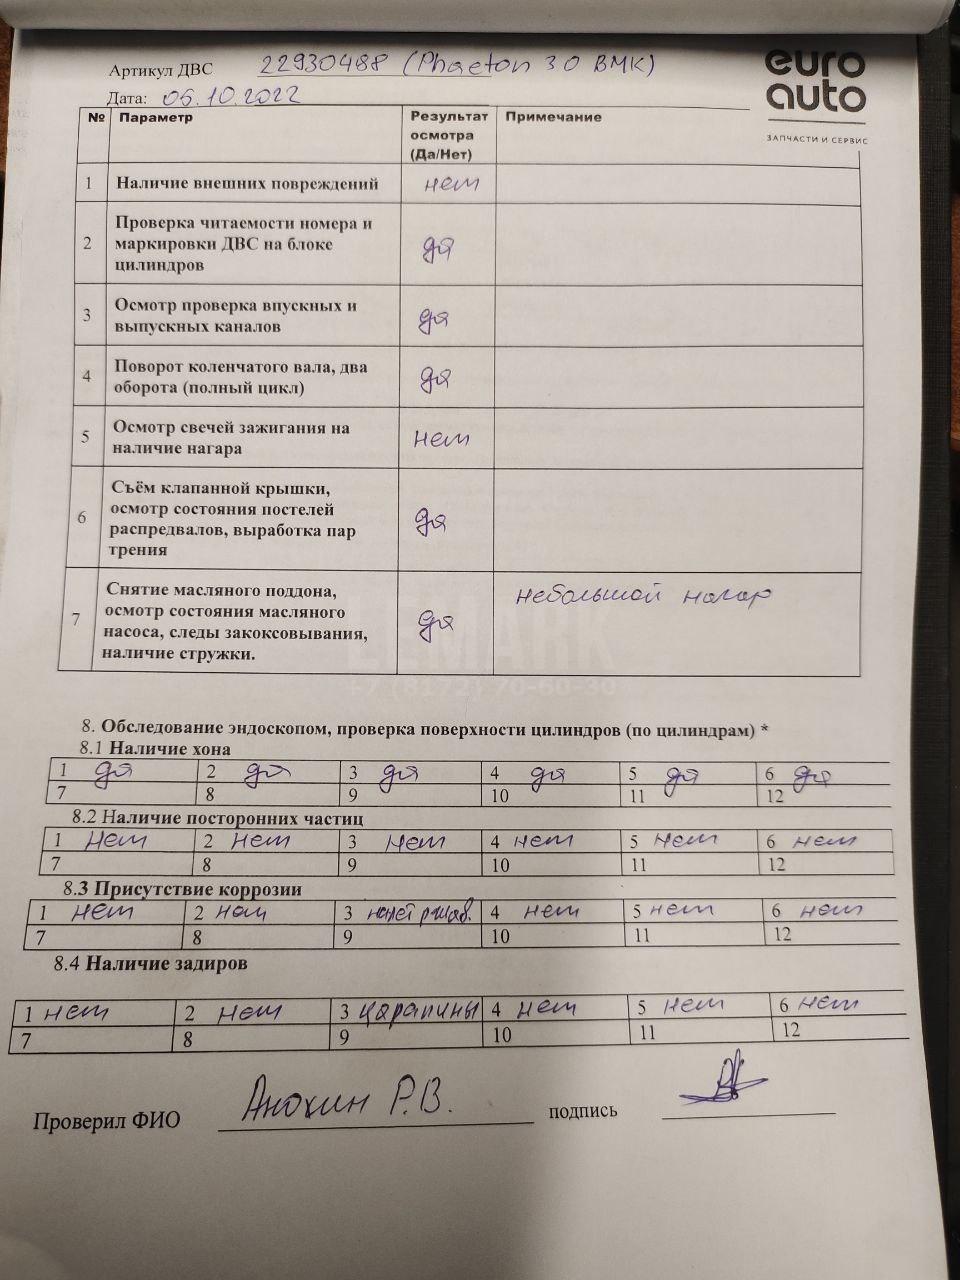 Артикул ДВС 22930488 (Phaeton 3.0 BMK)
euro
auto
ЗАПЧАСТИ И СЕРВИС
Дата: 06.10.2022
№ Параметр Результат осмотра (Да/Нет) Примечание
1 Наличие внешних повреждений нет
2 Проверка читаемости номера и маркировки ДВС на блоке цилиндров да
3 Осмотр проверка впускных и выпускных каналов да
4 Поворот коленчатого вала, два оборота (полный цикл) да
5 Осмотр свечей зажигания на наличие нагара нет
6 Съём клапанной крышки, осмотр состояния постелей распредвалов, выработка пар трения да
7 Снятие масляного поддона, осмотр состояния масляного насоса, следы закоксовывания, наличие стружки. да небольшой нагар
LEMARK
+7 (8172) 70-60-30
8. Обследование эндоскопом, проверка поверхности цилиндров (по цилиндрам) *
8.1 Наличие хона
1 да 2 да 3 да 4 да 5 да 6 да
7 8 9 10 11 12
8.2 Наличие посторонних частиц
1 нет 2 нет 3 нет 4 нет 5 нет 6 нет
7 8 9 10 11 12
8.3 Присутствие коррозии
1 нет 2 нет 3 налет ржав. 4 нет 5 нет 6 нет
7 8 9 10 11 12
8.4 Наличие задиров
1 нет 2 нет 3 царапины 4 нет 5 нет 6 нет
7 8 9 10 11 12
Проверил ФИО Анохин Р.В. подпись